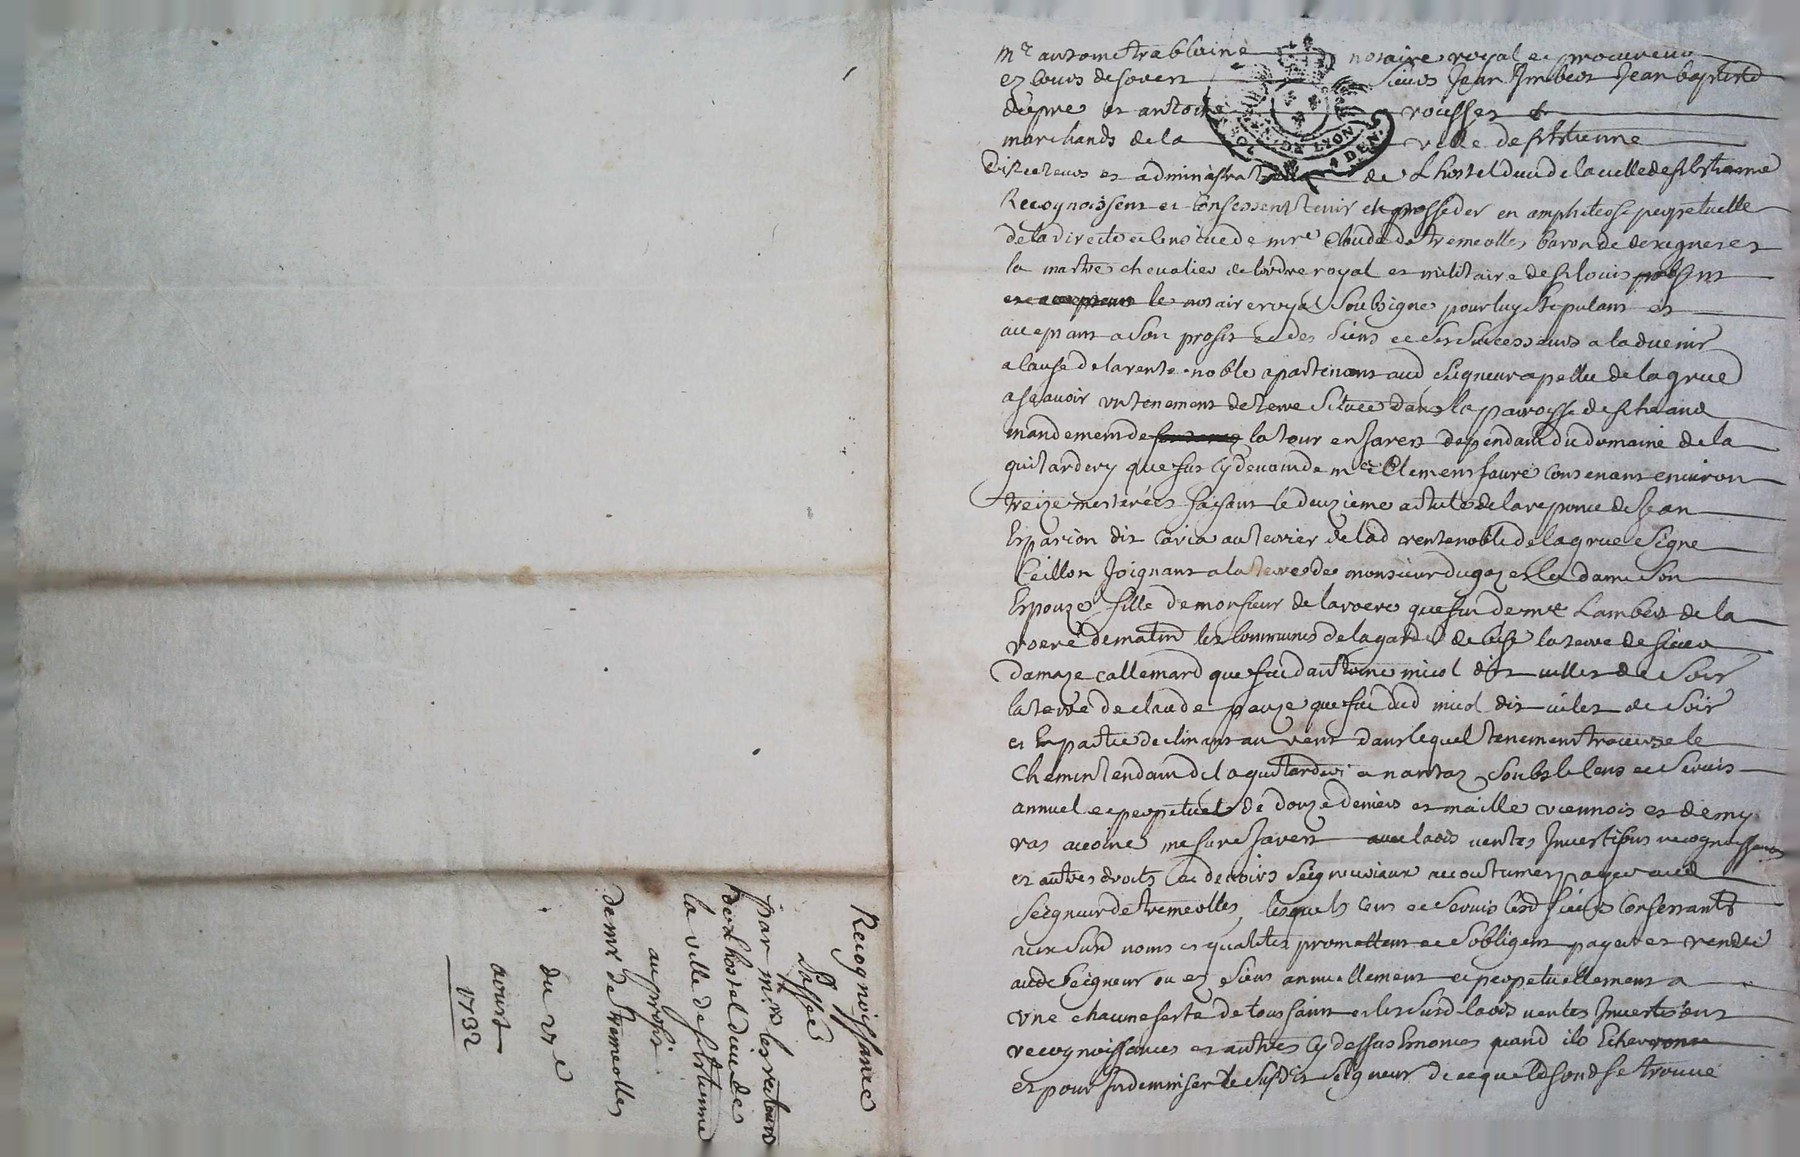 mre antoine trablaine notaire royal et procureur
ez cours de forest Sieurs Jean Imbert Jean baptiste
depre et antoine rousset
marchands de la ville de st Estienne
Directeurs et administrateurs de Lhostel dieu de la ville de st Estienne
Recognoissent et Confessent tenir et posseder en amphiteose perpetuelle
de la directe et censive de mre Claude de tremeolles baron de
la chevalier de lordre royal et militaire de st louis present
et acceptant le notaire royal Soubsigne pour luy stipulant et
aceptant a Son profit et des Siens et Ses Successeurs a ladvenir
a Cause de la rente noble apartenant aud Seigneur apellee de la grue
a scavoir un tenement de terre Situee dans la parroisse de st heand
mandement de la tour en forest dependant du domaine de la
guitardery que fut cy devant de mre Clemens faure contenant environ
treize mesterées faisant le deuzieme article de la reponce de Jean
Esparion dit au terrier de lad rente noble de la grue Signe
Ceillon Joignant a la terre de monsieur dugaz et la dame Son
Espouze fille de monsieur de la roere que fut de mre Lambert de la
roere de matin les communes de la garde de bise la terre de sieur
Damaze callemard que fut dantoine micol dit de Soir
la terre de claude peuze que fut dud micol dit de Soir
et En partie declinant au vent dans lequel tenement traverse le
chemin tendant de la guitarderi a Soubs le Cens et Servis
annuel et perpetuel de douze deniers et maille viennois et demy
ras avoine mesure forest avec laods ventes Investisons recognoissances
et autres droits et devoirs Seigneuriaux accoutumes payer aud
Seigneur de tremeolles, lesquels Cens et Servis lesd Sieurs Confessants
aux Susd noms et qualites promettent et Sobligent payer et rendre
aud Seigneur ou ez Siens annuellement et perpetuellement a
une chacune feste de toussaint et les Susd laods ventes Investisons
recognoissances et autres cy dessus Enonces quand ils Echerront
et pour Indemniser le Susdit Seigneur de ce que led fond se trouve
DE LYON
4 DEN.
Recognoissance
passée
par mrs les recteurs
de lhostel dieu de
la ville de st Estienne
au profit
de mr de tremeolles
du
aoust
1732